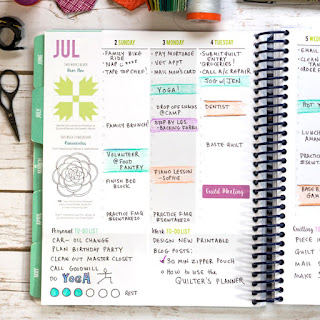 JUL
2 SUNDAY
3 MONDAY
4 TUESDAY
5 W
- FAMILY BIKE
RIDE
- NAP
- TAPE TOP CHEF
- PAY MORTGAGE
- VET APPT
- MAIL MOM'S CARD
- SUBMIT QUILT
ENTRY
- GROCERIES
- CALL A/C REPAIR
JOG w/ JEN
YOGA
DROP OFF LUNCHES
@ CAMP
DENTIST
FAMILY BRUNCH
STOP BY LQS
- BACKING FABRIC
BASTE QUILT
VOLUNTEER
@ FOOD
PANTRY
FINISH BEE
BLOCK
PIANO LESSON
- SOPHIE
Guild Meeting
PRACTICE FMQ
#SEWTAKE20
PRACTICE FMQ
#SEWTAKE20
LUNCH
PRACTICE
#SEWTAKE
Personal TO-DO LIST
CAR - OIL CHANGE
PLAN BIRTHDAY PARTY
CLEAN OUT MASTER CLOSET
CALL GOODWILL
DO YOGA
REST
Work TO-DO LIST
DESIGN NEW PRINTABLE
BLOG POSTS:
30 MIN ZIPPER POUCH
HOW TO USE THE
QUILTER'S PLANNER
Quilting TO
PIECE
QUILT
MAIL
MAKE